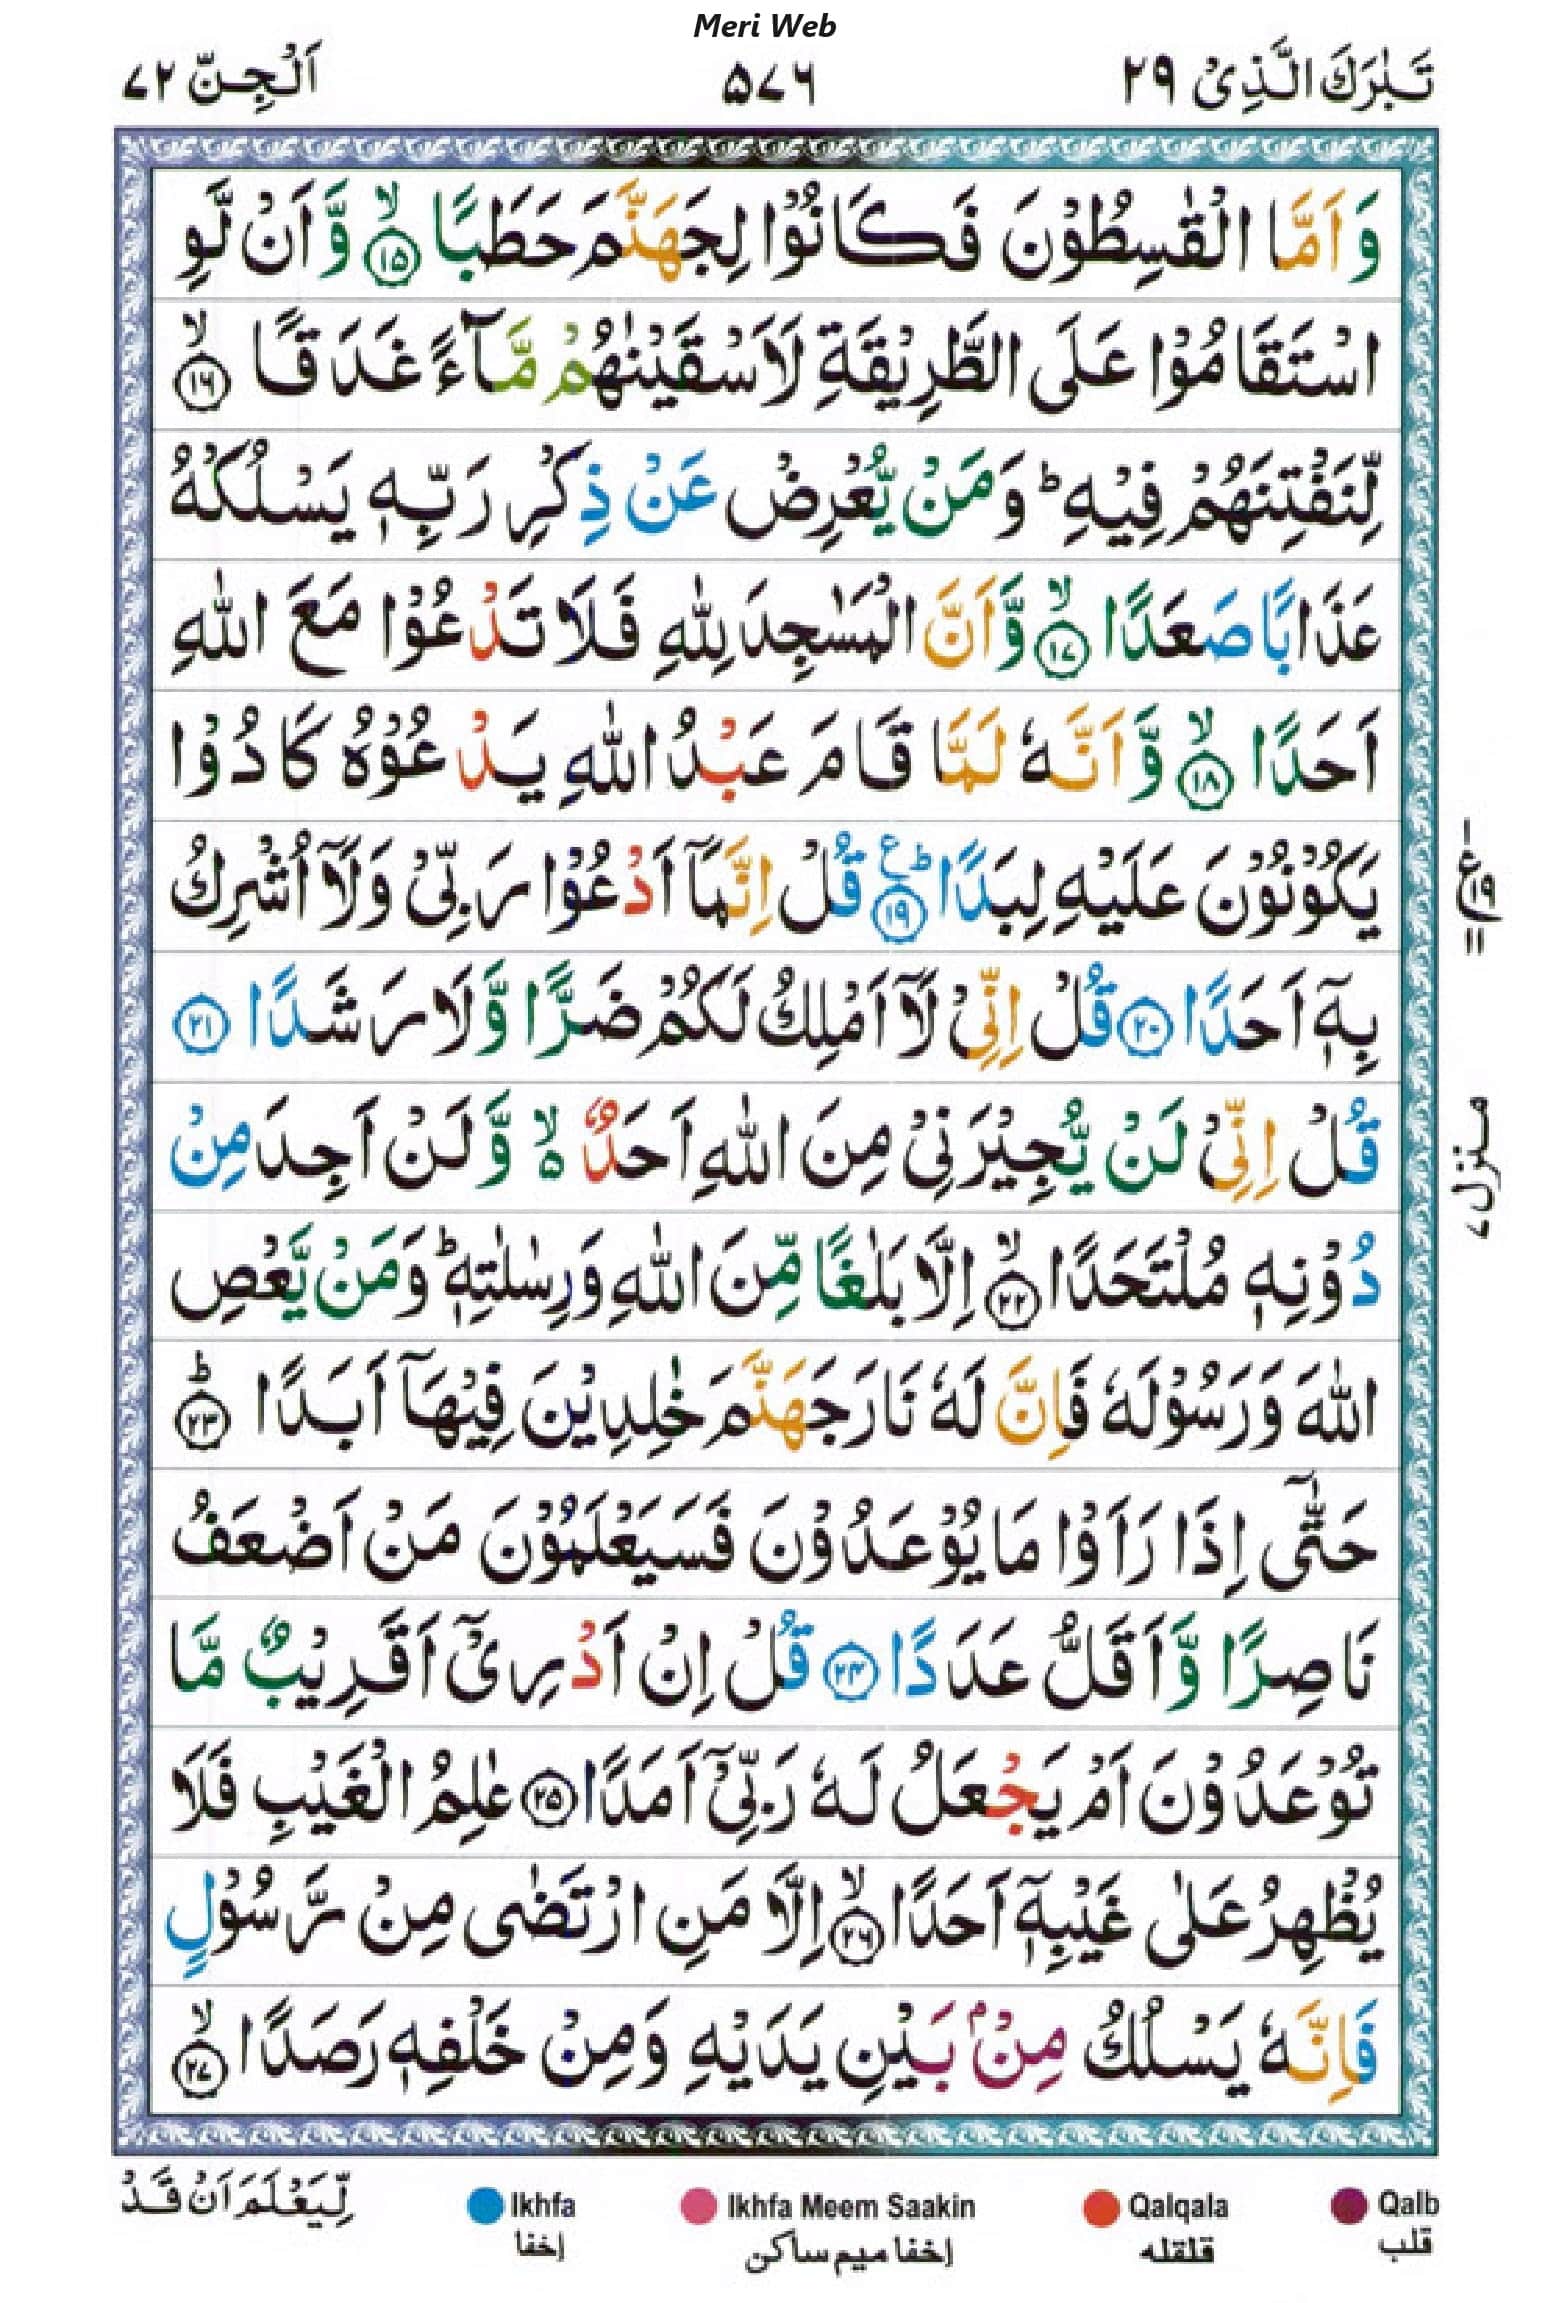 Meri Web
تَبٰرَكَ الَّذِىْ ٢٩
٥٧٦
اَلْجِنّ ٧٢
وَاَمَّا الْقٰسِطُوْنَ فَكَانُوْا لِجَهَنَّمَ حَطَبًا ۙ‏ ١٥ وَّاَنْ لَّوِ
اسْتَقَامُوْا عَلَى الطَّرِيْقَةِ لَاَسْقَيْنٰهُمْ مَّآءً غَدَقًا ۙ ١٦
لِّنَفْتِنَهُمْ فِيْهِ ؕ وَمَنْ يُّعْرِضْ عَنْ ذِكْرِ رَبِّهٖ يَسْلُكْهُ
عَذَابًا صَعَدًا ۙ ١٧ وَّاَنَّ الْمَسٰجِدَ لِلّٰهِ فَلَا تَدْعُوْا مَعَ اللّٰهِ
اَحَدًا ۙ ١٨ وَّاَنَّهٗ لَمَّا قَامَ عَبْدُ اللّٰهِ يَدْعُوْهُ كَادُوْا
يَكُوْنُوْنَ عَلَيْهِ لِبَدًا ؕ ع ١٩ قُلْ اِنَّمَاۤ اَدْعُوْا رَبِّىْ وَلَاۤ اُشْرِكُ
بِهٖۤ اَحَدًا ٢٠ قُلْ اِنِّىْ لَاۤ اَمْلِكُ لَكُمْ ضَرًّا وَّلَا رَشَدًا ٢١
قُلْ اِنِّىْ لَنْ يُّجِيْرَنِىْ مِنَ اللّٰهِ اَحَدٌ ۙ٥ وَّلَنْ اَجِدَ مِنْ
دُوْنِهٖ مُلْتَحَدًا ۙ ٢٢ اِلَّا بَلٰغًا مِّنَ اللّٰهِ وَرِسٰلٰتِهٖ ؕ وَمَنْ يَّعْصِ
اللّٰهَ وَرَسُوْلَهٗ فَاِنَّ لَهٗ نَارَ جَهَنَّمَ خٰلِدِيْنَ فِيْهَاۤ اَبَدًا ؕ ٢٣
حَتّٰۤى اِذَا رَاَوْا مَا يُوْعَدُوْنَ فَسَيَعْلَمُوْنَ مَنْ اَضْعَفُ
نَاصِرًا وَّاَقَلُّ عَدَدًا ٢٤ قُلْ اِنْ اَدْرِىْۤ اَقَرِيْبٌ مَّا
تُوْعَدُوْنَ اَمْ يَجْعَلُ لَهٗ رَبِّىْۤ اَمَدًا ٢٥ عٰلِمُ الْغَيْبِ فَلَا
يُظْهِرُ عَلٰى غَيْبِهٖۤ اَحَدًا ۙ ٢٦ اِلَّا مَنِ ارْتَضٰى مِنْ رَّسُوْلٍ
فَاِنَّهٗ يَسْلُكُ مِنْۢ بَيْنِ يَدَيْهِ وَمِنْ خَلْفِهٖ رَصَدًا ۙ ٢٧
ع ١٩
منزل ٧
لِّيَعْلَمَ اَنْ قَدْ
Ikhfa
إخفا
Ikhfa Meem Saakin
إخفا ميم ساكن
Qalqala
قلقله
Qalb
قلب